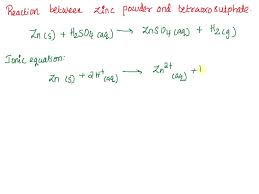 Reaction between zinc powder and tetraoxosulphate
Zn(s) + H₂SO₄(aq) → ZnSO₄(aq) + H₂(g)
Ionic equation:
Zn(s) + 2H⁺(aq) → Zn²⁺(aq) +